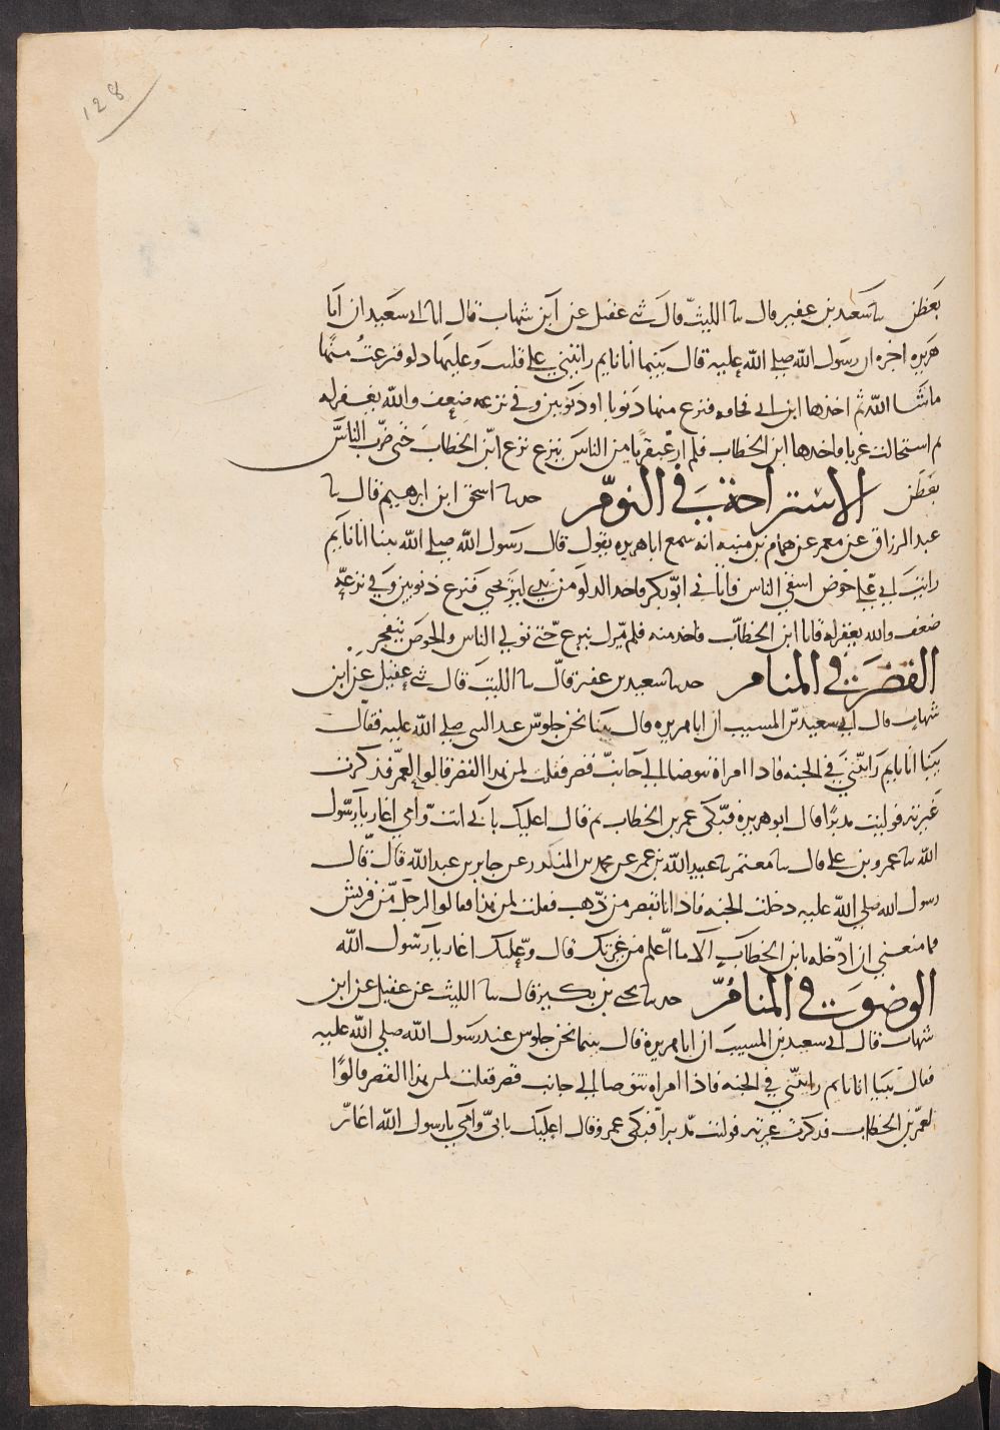 128
بعطن نا سعيد بن عفير قال نا الليث قال ني عقيل عن ابن شهاب قال انا سعيد ان ابا
هريره اخبره ان رسول الله صلى الله عليه قال بينما انا نايم رايتني على قليب وعليها دلو فنزعت منها
ما شا الله ثم اخذها ابن ابي قحافه فنزع منها ذنوبا او ذنوبين وفي نزعه ضعف والله يغفر له
ثم استحالت غربا فاخذها ابن الخطاب فلم ار عبقريا من الناس ينزع نزع ابن الخطاب حتى ضرب الناس
بعطن الاستراحة في النوم حدثنا اسحق ابن ابرهيم قال نا
عبد الرزاق عن معمر عن همام بن منبه انه سمع ابا هريره يقول قال رسول الله صلى الله بينا انا نايم
رايت اني على حوض اسقي الناس فاتاني ابو بكر فاخذ الدلو من يدي ليريحني فنزع ذنوبين وفي نزعه
ضعف والله يغفر له فاتا ابن الخطاب فاخذ منه فلم يزل ينزع حتى تولى الناس والحوض يتفجر
القصر في المنام حدثنا سعيد بن عفير قال نا الليث قال ني عقيل عن ابن
شهاب قال ني سعيد بن المسيب ان ابا هريره قال بينا نحن جلوس عند النبي صلى الله عليه فقال
بينا انا نايم رايتني في الجنه فاذا امراة تتوضا الى جانب قصر فقلت لمن هذا القصر قالوا لعمر فذكرت
غيرته فوليت مدبرا قال ابو هريرة فبكى عمر بن الخطاب ثم قال اعليك بابي انت وامي اغار يا رسول
الله نا عمرو بن علي قال نا معتمر نا عبيد الله بن عمر عن محمد بن المنكدر عن جابر بن عبد الله قال قال
رسول الله صلى الله عليه دخلت الجنه فاذا انا بقصر من ذهب فقلت لمن هذا فقالوا لرجل من قريش
فما منعني ان ادخله يا ابن الخطاب الا ما اعلم من غيرتك قال وعليك اغار يا رسول الله
الوضو في المنام حدثنا يحيى بن بكير قال نا الليث عن عقيل عن ابن
شهاب قال ني سعيد بن المسيب ان ابا هريرة قال بينما نحن جلوس عند رسول الله صلى الله عليه
فقال بينا انا نايم رايتني في الجنه فاذا امراه تتوضا الى جانب قصر فقلت لمن هذا القصر قالوا
لعمر بن الخطاب فذكرت غيرته فوليت مدبرا فبكى عمر وقال اعليك بابي وامي يا رسول الله اغار